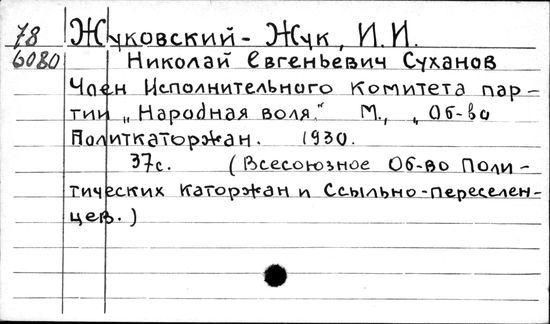 78 Жуковский - Жук, И.И.
6080 Николай Евгеньевич Суханов
Член Исполнительного Комитета пар-
тии „Народная воля." М., „Об-во
Политкаторжан. 1930.
37с. (Всесоюзное Об-во Поли-
тических Каторжан и Ссыльно-переселен-
цев.)